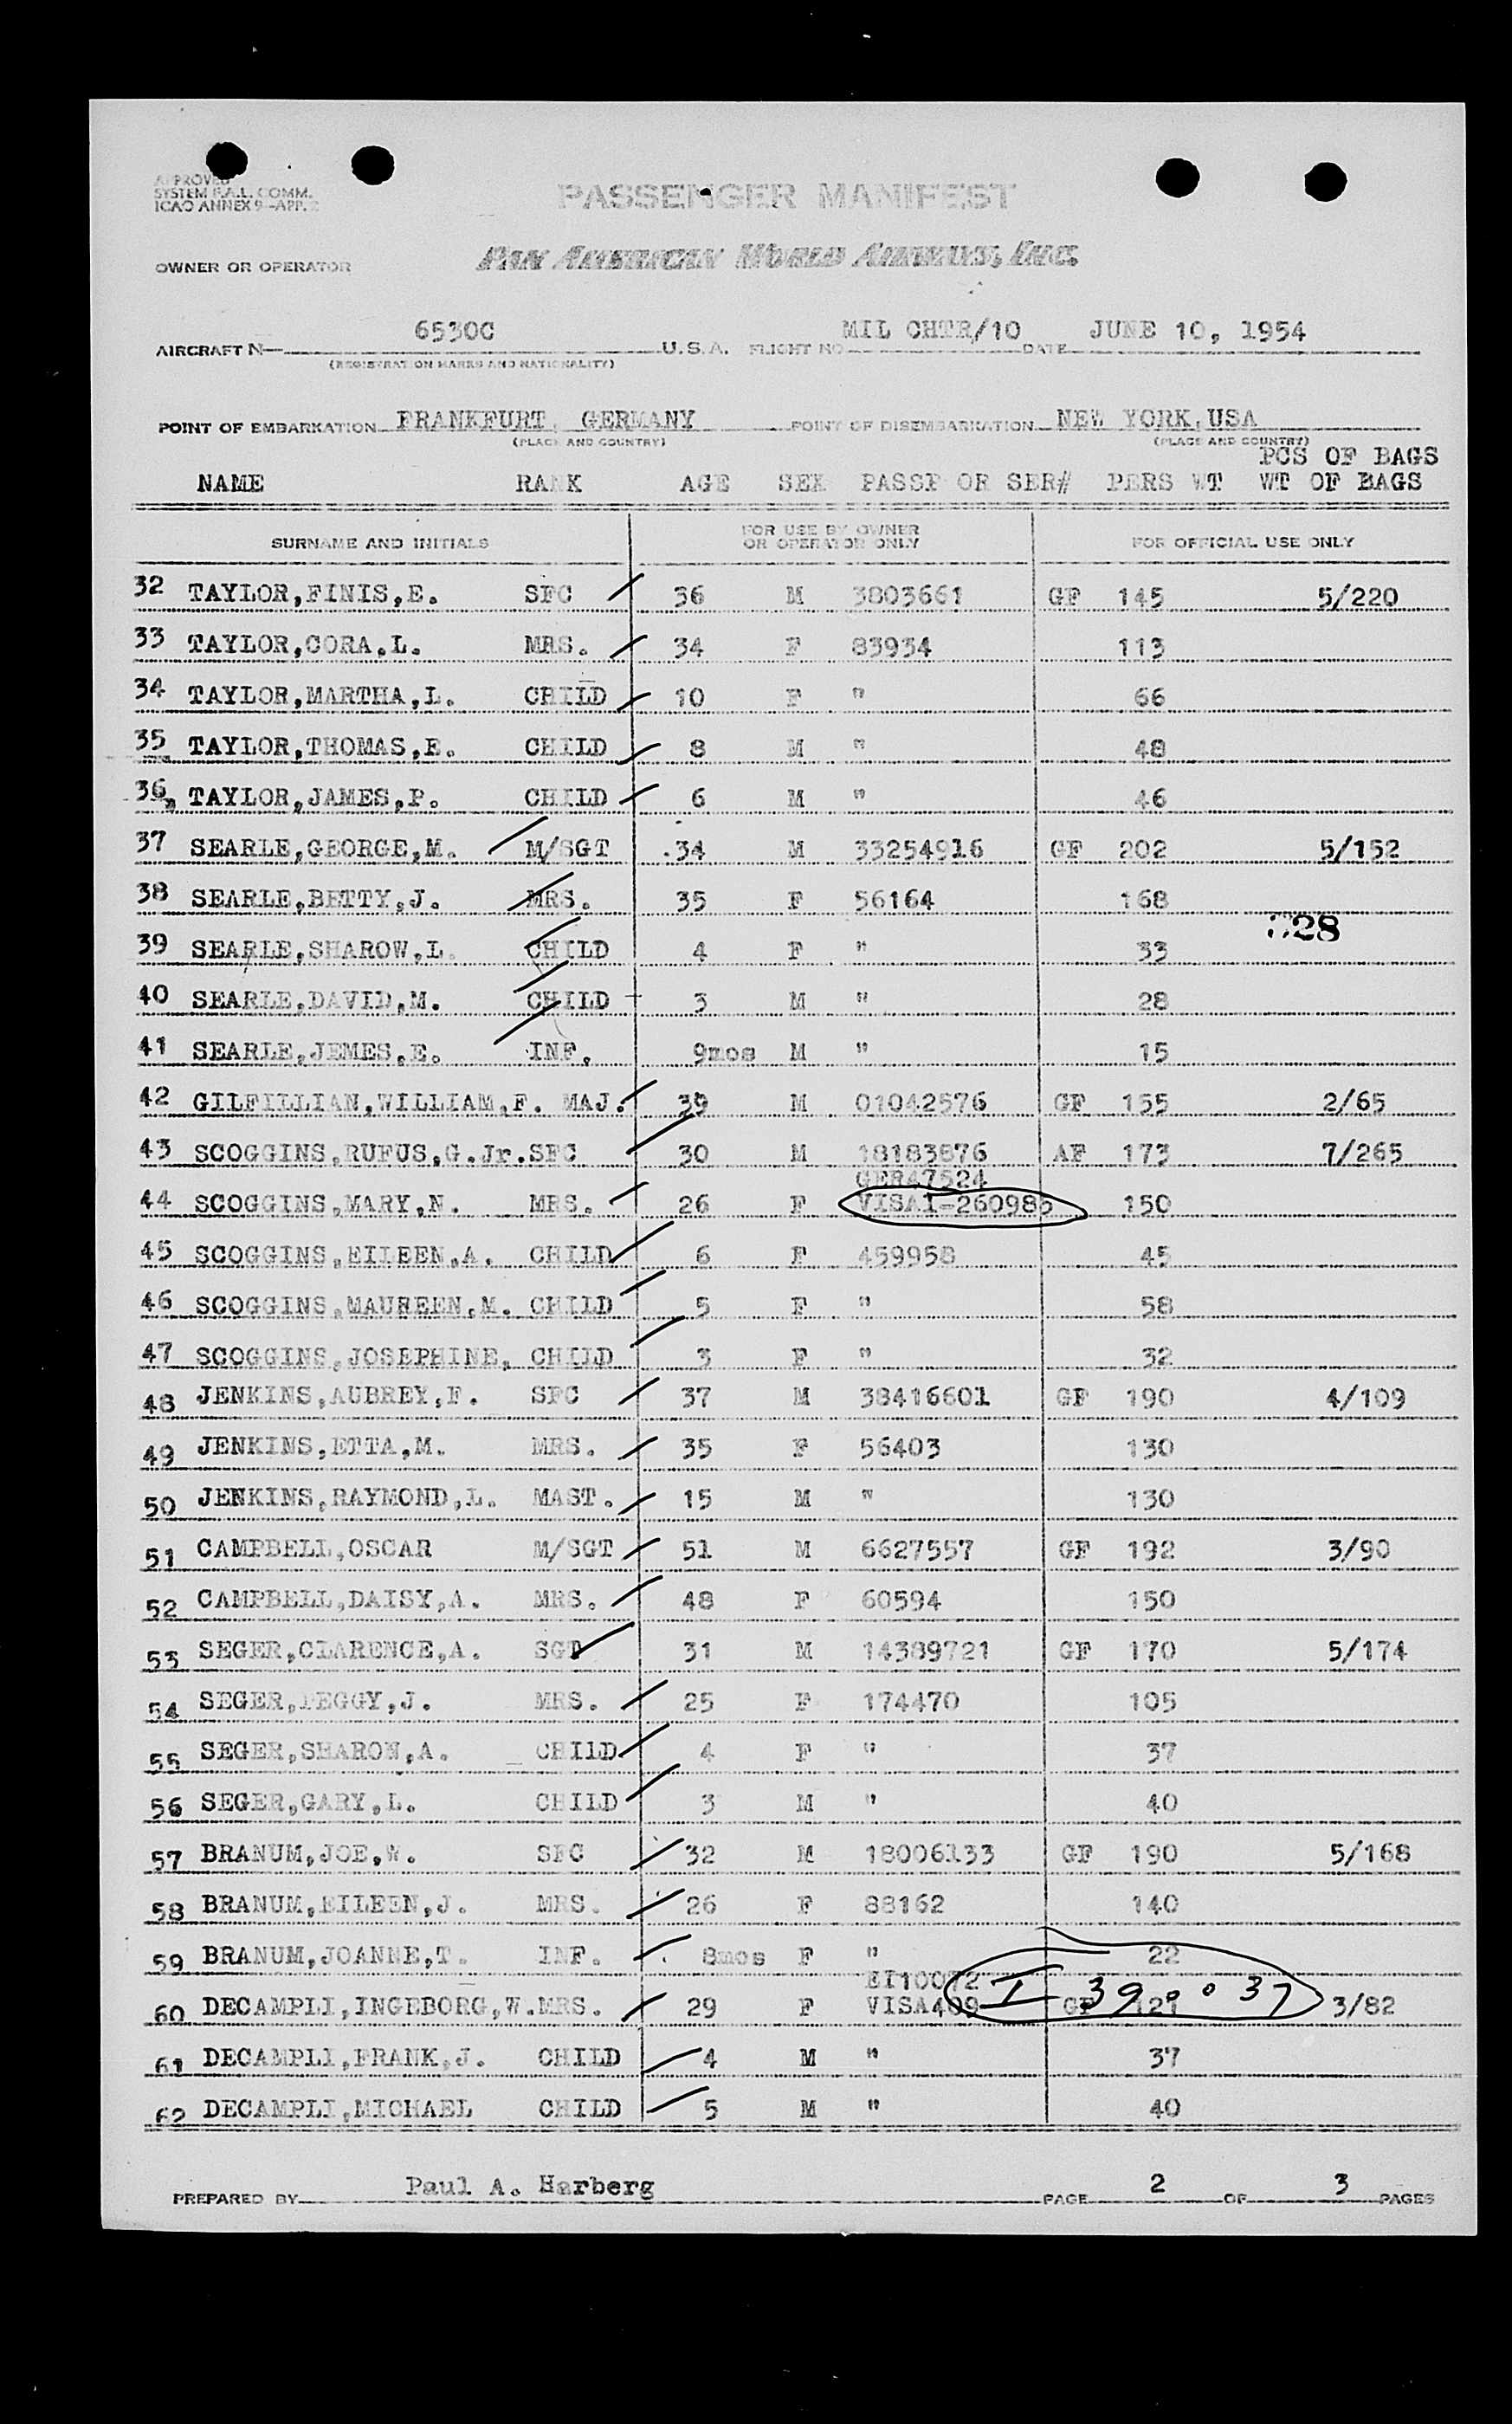 APPROVED
SYSTEM F.A.L. COMM.
ICAO ANNEX 9-APP. 2
PASSENGER MANIFEST
OWNER OR OPERATOR PAN AMERICAN WORLD AIRWAYS, INC.
AIRCRAFT N— 6530C U.S.A. FLIGHT NO MIL CHTR/10 DATE JUNE 10, 1954
(REGISTRATION MARKS AND NATIONALITY)
POINT OF EMBARKATION FRANKFURT, GERMANY POINT OF DISEMBARKATION NEW YORK,USA
(PLACE AND COUNTRY) (PLACE AND COUNTRY)
PCS OF BAGS
NAME RANK AGE SEX PASSP OR SER# PERS WT WT OF BAGS
SURNAME AND INITIALS FOR USE BY OWNER OR OPERATOR ONLY FOR OFFICIAL USE ONLY
32 TAYLOR,FINIS,E. SFC 36 M 3803661 GF 145 5/220
33 TAYLOR,CORA,L. MRS. 34 F 83934 113
34 TAYLOR,MARTHA,L. CHILD 10 F " 66
35 TAYLOR,THOMAS,E. CHILD 8 M " 48
36 TAYLOR,JAMES,P. CHILD 6 M " 46
37 SEARLE,GEORGE,M. M/SGT 34 M 33254916 GF 202 5/152
38 SEARLE,BETTY,J. MRS. 35 F 56164 168
28
39 SEARLE,SHAROW,L. CHILD 4 F " 33
40 SEARLE,DAVID,M. CHILD 3 M " 28
41 SEARLE,JEMES,E. INF. 9mos M " 15
42 GILFILLIAN,WILLIAM,F. MAJ. 39 M 01042576 GF 155 2/65
43 SCOGGINS,RUFUS,G.Jr.SFC 30 M 18183876 AF 173 7/265
GER47524
44 SCOGGINS,MARY,N. MRS. 26 F VISAI-260985 150
45 SCOGGINS,EILEEN,A. CHILD 6 F 459958 45
46 SCOGGINS,MAUREEN,M. CHILD 5 F " 58
47 SCOGGINS,JOSEPHINE, CHILD 3 F " 32
48 JENKINS,AUBREY,F. SFC 37 M 38416601 GF 190 4/109
49 JENKINS,ETTA,M. MRS. 35 F 56403 130
50 JENKINS,RAYMOND,L. MAST. 15 M " 130
51 CAMPBELL,OSCAR M/SGT 51 M 6627557 GF 192 3/90
52 CAMPBELL,DAISY,A. MRS. 48 F 60594 150
53 SEGER,CLARENCE,A. SGT 31 M 14389721 GF 170 5/174
54 SEGER,PEGGY,J. MRS. 25 F 174470 105
55 SEGER,SHARON,A. CHILD 4 F " 37
56 SEGER,GARY,L. CHILD 3 M " 40
57 BRANUM,JOE,W. SFC 32 M 18006133 GF 190 5/168
58 BRANUM,EILEEN,J. MRS. 26 F 88162 140
59 BRANUM,JOANNE,T. INF. 8mos F " 22
EI10072 I-390037
60 DECAMPLI,INGEBORG,W.MRS. 29 F VISA409 GF 121 3/82
61 DECAMPLI,FRANK,J. CHILD 4 M " 37
62 DECAMPLI,MICHAEL CHILD 5 M " 40
PREPARED BY Paul A. Harberg PAGE 2 OF 3 PAGES